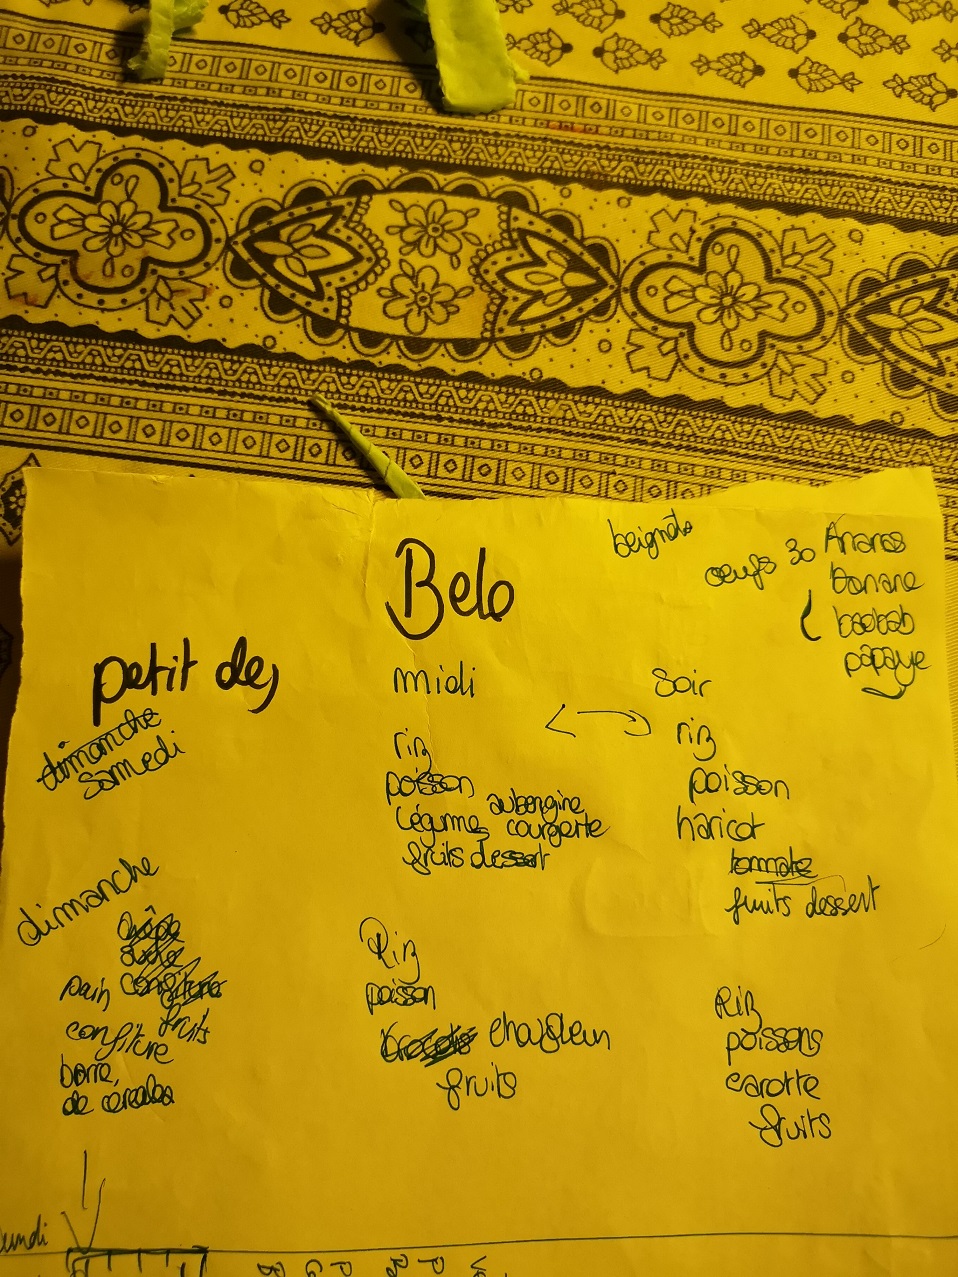 beignets
oeufs 30
Ananas
banane
baobab
papaye
Belo
petit dej
midi
soir
dimanche
samedi
riz
poisson
légumes aubergine
courgette
fruits dessert
riz
poisson
haricot
tommate
fruits dessert
dimanche
crêpe
sucre
confiture
pain
fruits
confiture
barre
de cereales
Riz
poisson
fruits
Riz
poissons
carotte
fruits
lundi